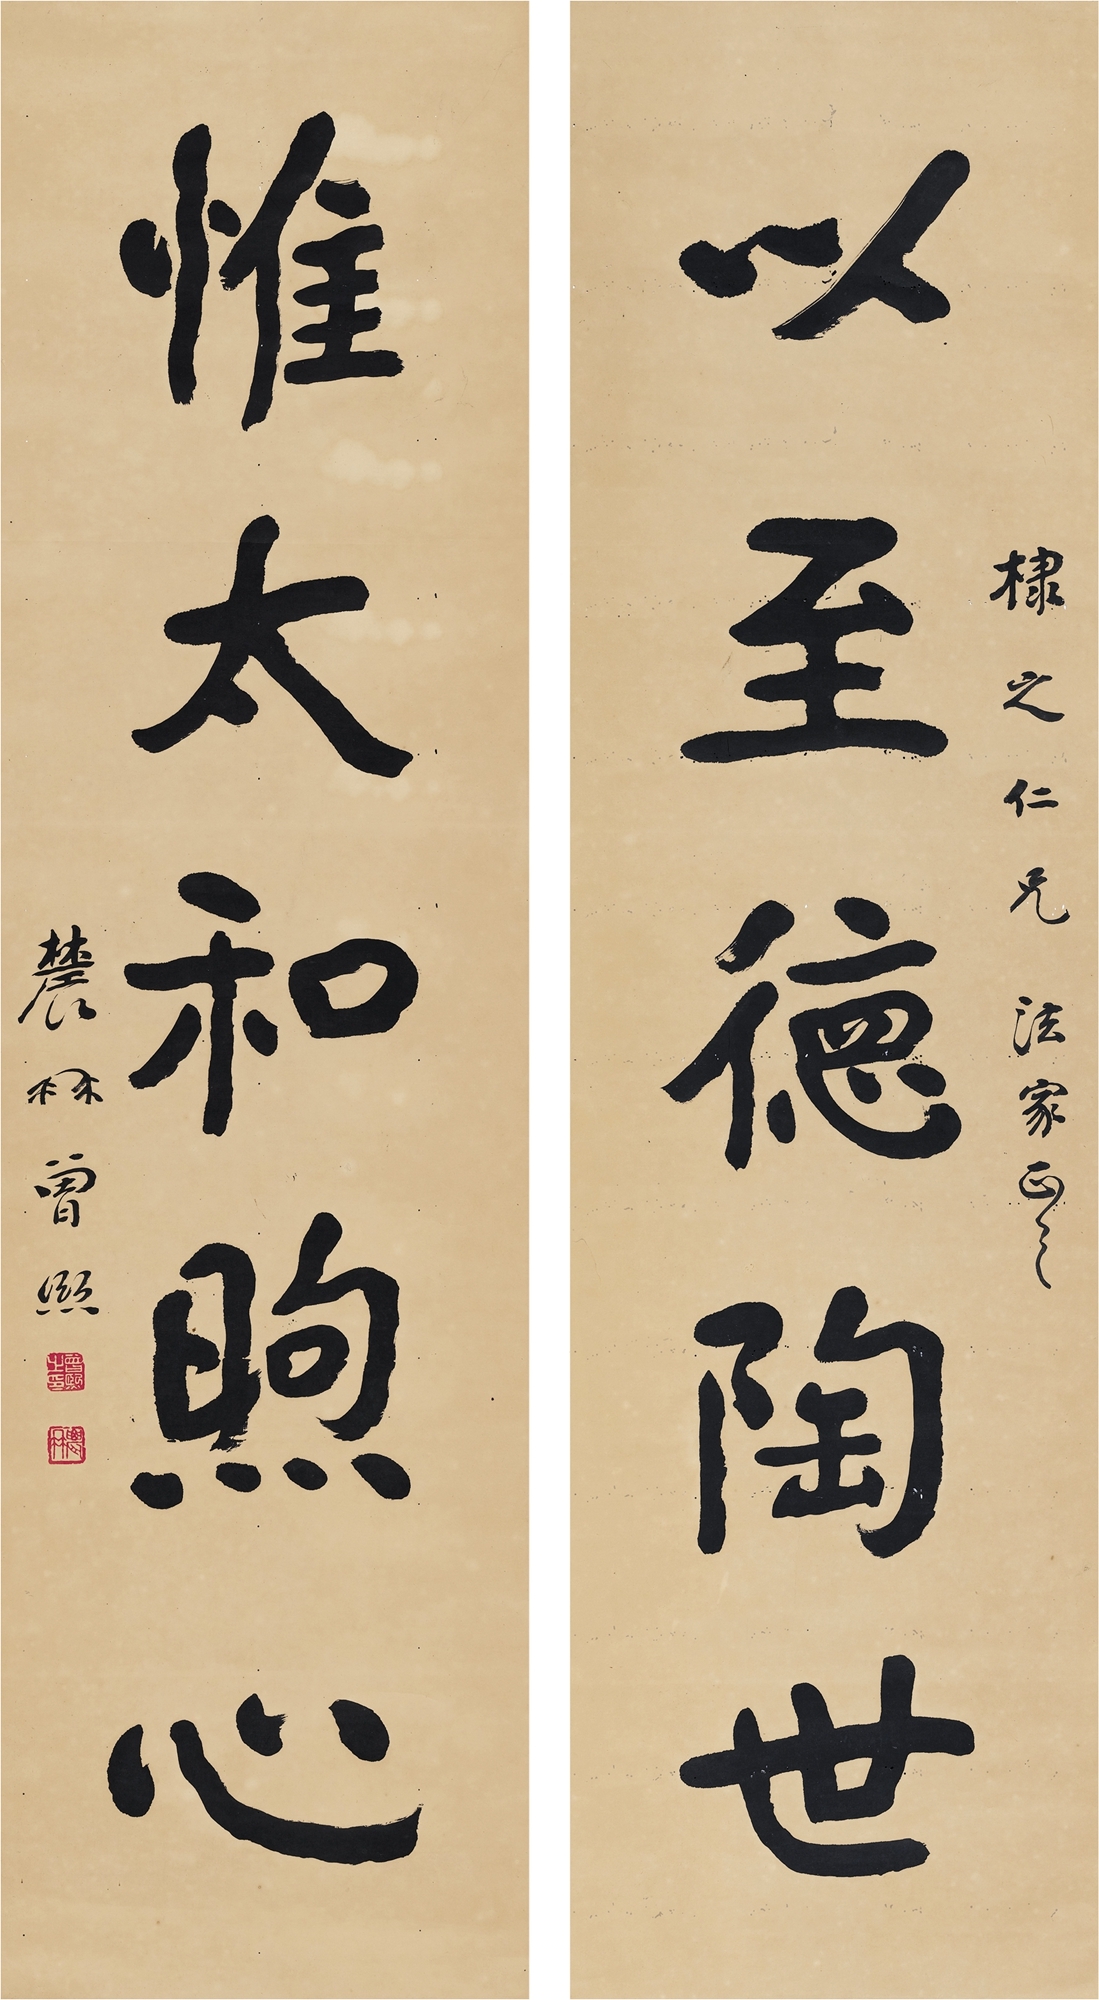 棣之仁兄法家正之
以至德陶世
惟太和煦心
農髯曾熙
曾熙之印
農髯